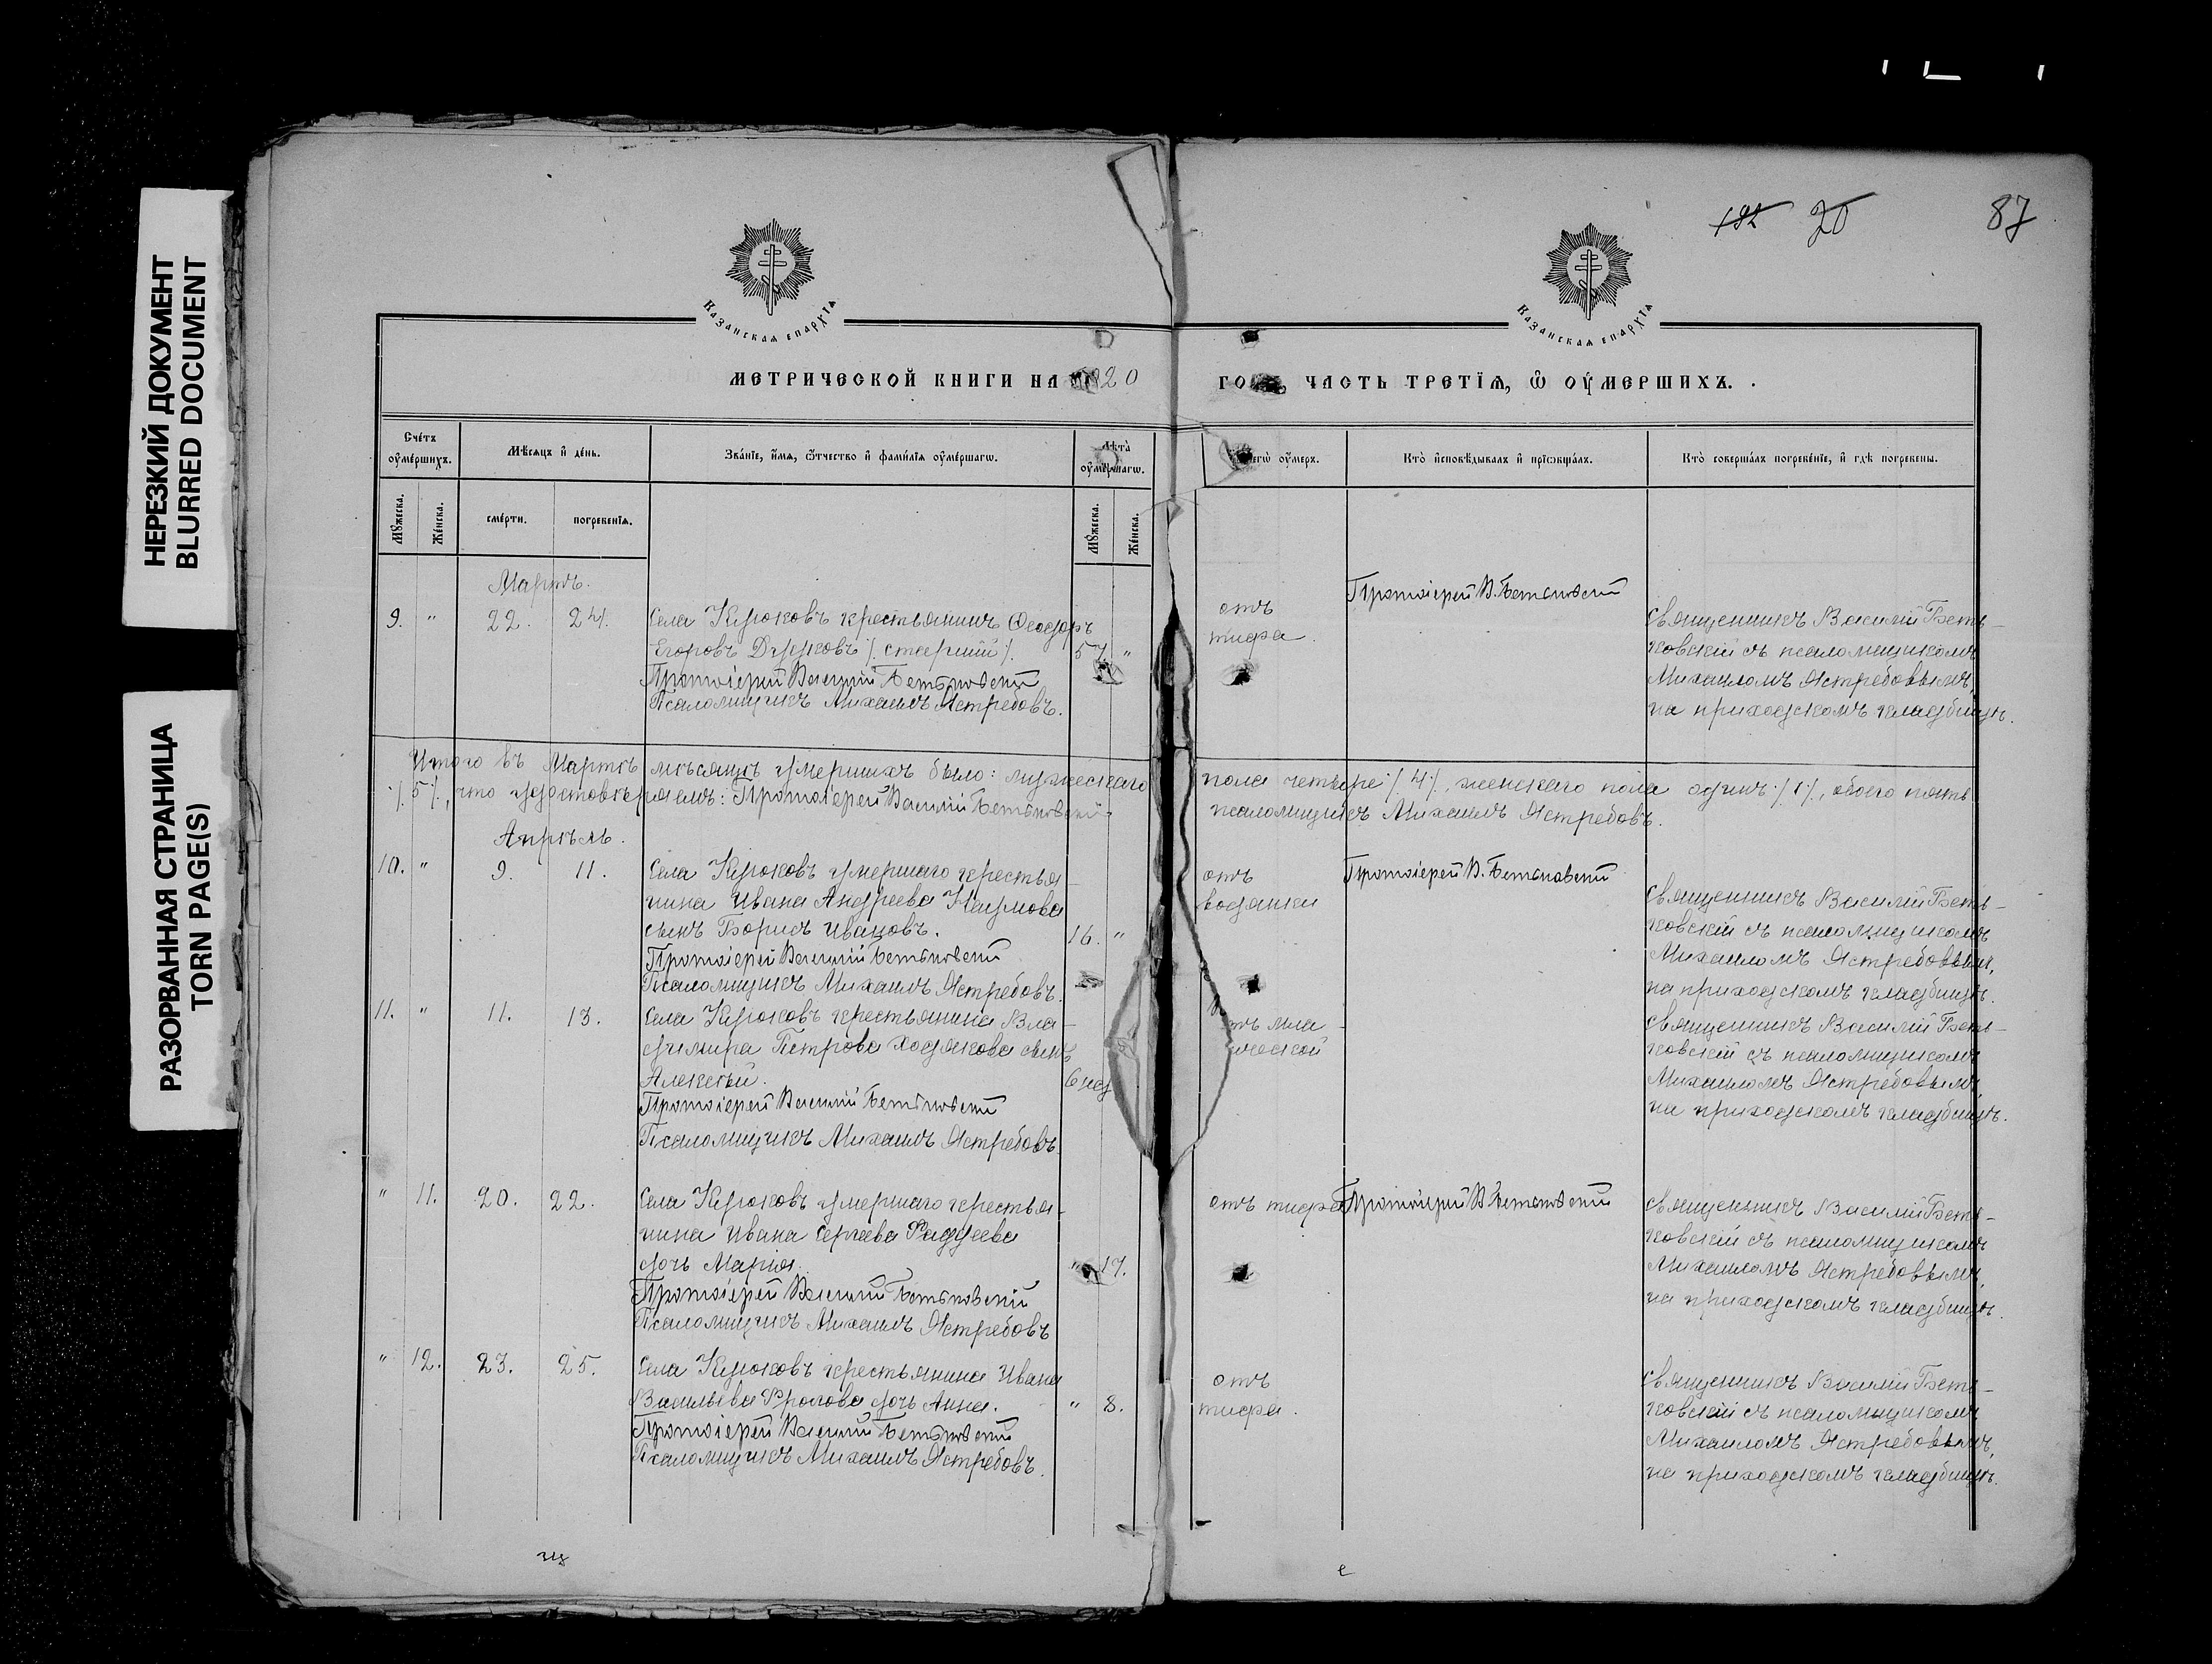 НЕРЕЗКИЙ ДОКУМЕНТ
BLURRED DOCUMENT
РАЗОРВАННАЯ СТРАНИЦА
TORN PAGE(S)
20 87
Казанская епархїя
Казанская епархїя
МЕТРИЧЕСКОЙ КНИГИ НА 20
ЧАСТЬ ТРЕТЇЯ, Ѿ ОУМЕРШИХЪ.
Счетъ оумершихъ.
Мѣсяцъ и день.
Званїе, имя, отчество и фамилїя оумершагѡ.
Лѣта оумершагѡ.
оумеръ.
Кто исповѣдывалъ и прїобщалъ.
Кто совершалъ погребенїе, и гдѣ погребены.
Мужеска.
Женска.
смерти.
погребенїя.
Мужеска.
Женска.
Мартъ.
9. " 22. 24. Села Кукоковъ крестьянинъ Ѳеодоръ
Егоровъ /старшій/. 57 "
Протоіерей Василій Бетьковскій
Псаломщикъ Михаилъ Ястребовъ.
отъ
тифа.
Протоіерей В. Бетьковскій
Священникъ Василій Беть-
ковскій съ псаломщикомъ
Михаиломъ Ястребовымъ,
на приходскомъ кладбищѣ.
Итого въ Мартѣ мѣсяцѣ умершихъ было: мужескаго пола четыре /4/, женскаго пола одинъ /1/, обоего пять
/5/, что удостовѣряемъ: Протоіерей Василій Бетьковскій псаломщикъ Михаилъ Ястребовъ.
Апрѣль.
10. " 9. 11. Села Кукоковъ умершаго крестья-
нина Ивана Андреева Наумова
сынъ Борисъ Ивановъ. 16. "
Протоіерей Василій Бетьковскій
Псаломщикъ Михаилъ Ястребовъ.
отъ
водянки
Протоіерей В. Бетьковскій
Священникъ Василій Беть-
ковскій съ псаломщикомъ
Михаиломъ Ястребовымъ,
на приходскомъ кладбищѣ.
11. " 11. 13. Села Кукоковъ крестьянина Вла-
диміра Петрова Ходякова сынъ
Алексѣй. 6 нед
Протоіерей Василій Бетьковскій
Псаломщикъ Михаилъ Ястребовъ
отъ мла
ческой
Священникъ Василій Беть-
ковскій съ псаломщикомъ
Михаиломъ Ястребовымъ,
на приходскомъ кладбищѣ.
" 11. 20. 22. Села Кукоковъ умершаго крестья-
нина Ивана Сергѣева Фаддеева
дочь Марія. " 17.
Протоіерей Василій Бетьковскій
Псаломщикъ Михаилъ Ястребовъ
отъ тифа
Протоіерей В. Бетьковскій
Священникъ Василій Беть-
ковскій съ псаломщикомъ
Михаиломъ Ястребовымъ,
на приходскомъ кладбищѣ.
" 12. 23. 25. Села Кукоковъ крестьянина Ивана
Васильева Фролова дочь Анна. " 8.
Протоіерей Василій Бетьковскій
Псаломщикъ Михаилъ Ястребовъ.
отъ
тифа.
Священникъ Василій Беть-
ковскій съ псаломщикомъ
Михаиломъ Ястребовымъ,
на приходскомъ кладбищѣ.